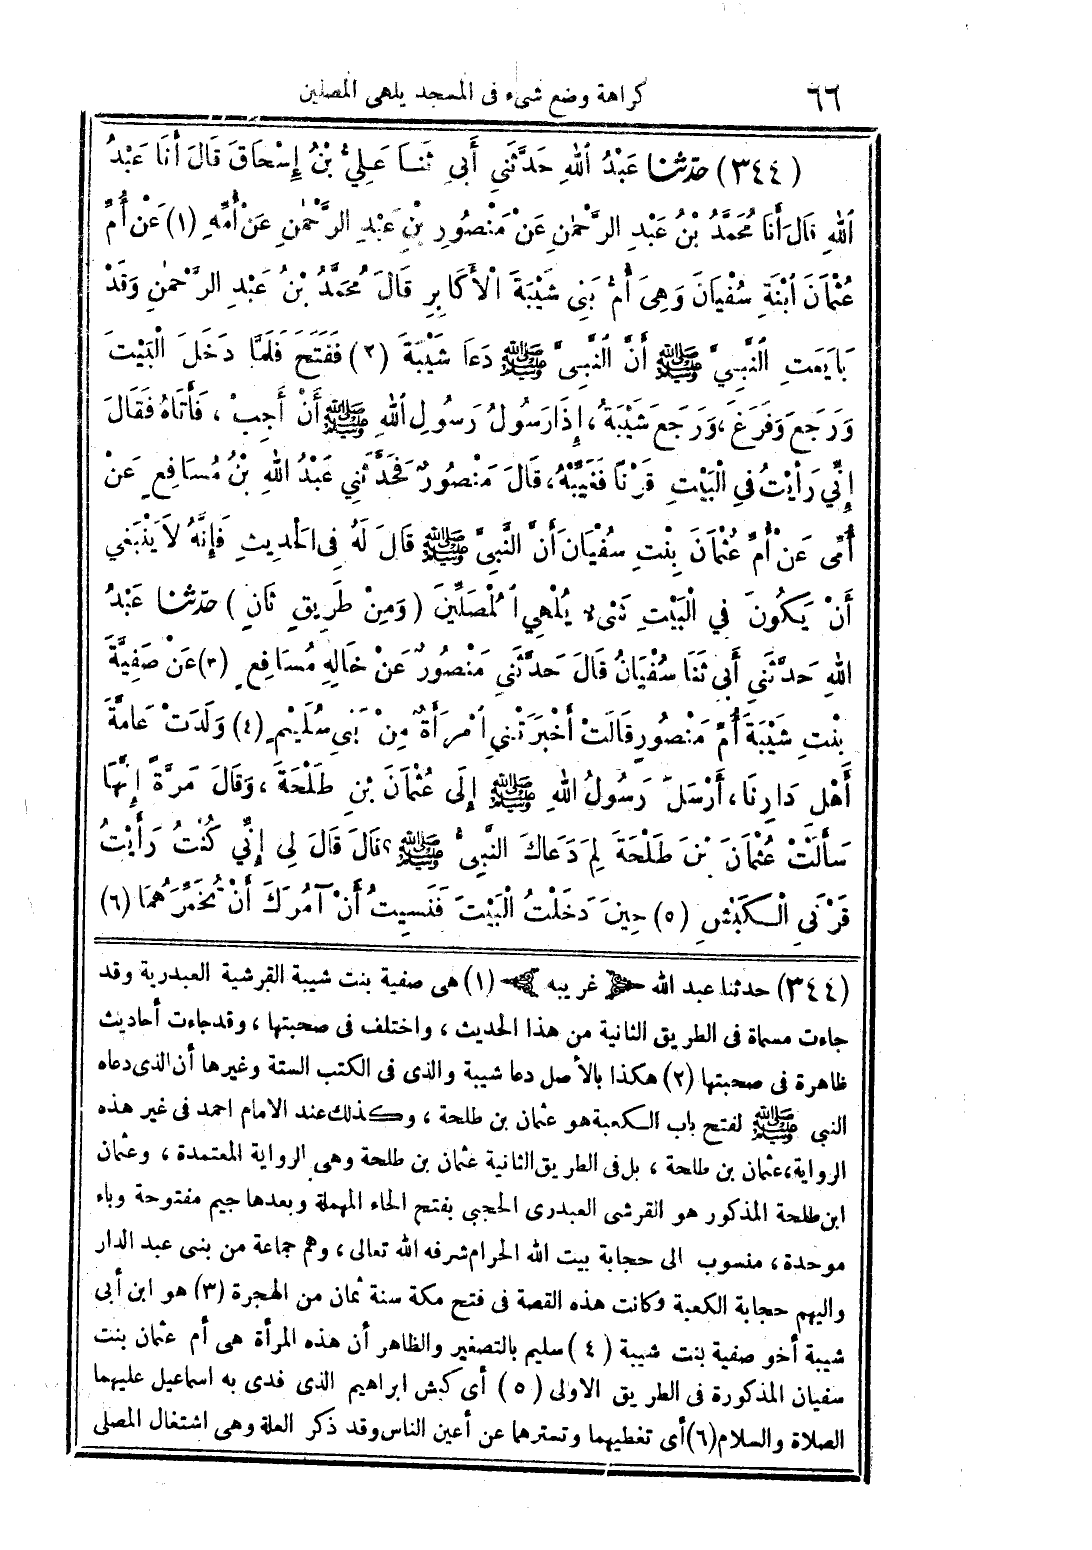 ٦٦ كراهة وضع شىء فى المسجد يلهى المصلين
(٣٤٤) حدّثنا عَبْدُ ٱللهِ حَدَّثَنِي أَبِي ثَنَا عَلِيُّ بْنُ إِسْحَاقَ قَالَ أَنَا عَبْدُ
ٱللهِ قَالَ أَنَا مُحَمَّدُ بْنُ عَبْدِ الرَّحْمٰنِ عَنْ مَنْصُورِ بْنِ عَبْدِ الرَّحْمٰنِ عَنْ أُمِّهِ (١) عَنْ أُمِّ
عُثْمَانَ ٱبْنَةِ سُفْيَانَ وَهِىَ أُمُّ بَنِي شَيْبَةَ الْأَكَابِرِ قَالَ مُحَمَّدُ بْنُ عَبْدِ الرَّحْمٰنِ وَقَدْ
بَايَعَتِ ٱلنَّبِيَّ ﷺ أَنَّ ٱلنَّبِىَّ ﷺ دَعَا شَيْبَةَ (٢) فَفَتَحَ فَلَمَّا دَخَلَ الْبَيْتَ
وَرَجَعَ وَفَرَغَ، وَرَجَعَ شَيْبَةُ، إِذَا رَسُولُ رَسُولِ ٱللهِ ﷺ أَنْ أَجِبْ، فَأَتَاهُ فَقَالَ
إِنِّي رَأَيْتُ فِي الْبَيْتِ قَرْنًا فَغَيِّبْهُ، قَالَ مَنْصُورٌ فَحَدَّثَنِي عَبْدُ اللهِ بْنُ مُسَافِعٍ عَنْ
أُمِّى عَنْ أُمِّ عُثْمَانَ بِنْتِ سُفْيَانَ أَنَّ النَّبِىَّ ﷺ قَالَ لَهُ فِى الْحَدِيثِ فَإِنَّهُ لَا يَنْبَغِي
أَنْ يَكُونَ فِي الْبَيْتِ شَىْءٌ يُلْهِي ٱلْمُصَلِّينَ (وَمِنْ طَرِيقٍ ثَانٍ) حدّثنا عَبْدُ
اللهِ حَدَّثَنِي أَبِي ثَنَا سُفْيَانُ قَالَ حَدَّثَنِي مَنْصُورٌ عَنْ خَالِهِ مُسَافِعٍ (٣) عَنْ صَفِيَّةَ
بِنْتِ شَيْبَةَ أُمِّ مَنْصُورٍ قَالَتْ أَخْبَرَتْنِي ٱمْرَأَةٌ مِنْ بَنِي سُلَيْمٍ (٤) وَلَدَتْ عَامَّةَ
أَهْلِ دَارِنَا، أَرْسَلَ رَسُولُ اللهِ ﷺ إِلَى عُثْمَانَ بْنِ طَلْحَةَ، وَقَالَ مَرَّةً إِنَّهَا
سَأَلَتْ عُثْمَانَ بْنَ طَلْحَةَ لِمَ دَعَاكَ النَّبِىُّ ﷺ؟ قَالَ قَالَ لِى إِنِّي كُنْتُ رَأَيْتُ
قَرْنَىِ الْكَبْشِ (٥) حِينَ دَخَلْتُ الْبَيْتَ فَنَسِيتُ أَنْ آمُرَكَ أَنْ تُخَمِّرَهُمَا (٦)
(٣٤٤) حدثنا عبد الله غريبه (١) هى صفية بنت شيبة القرشية العبدرية وقد
جاءت مسماة فى الطريق الثانية من هذا الحديث، واختلف فى صحبتها، وقد جاءت أحاديث
ظاهرة فى صحبتها (٢) هكذا بالأصل دعا شيبة والذى فى الكتب الستة وغيرها أن الذى دعاه
النبي ﷺ لفتح باب الكعبة هو عثمان بن طلحة، وكذلك عند الامام احمد فى غير هذه
الرواية، عثمان بن طلحة، بل فى الطريق الثانية عثمان بن طلحة وهى الرواية المعتمدة، وعثمان
ابن طلحة المذكور هو القرشى العبدرى الحجبى بفتح الحاء المهملة وبعدها جيم مفتوحة وباء
موحدة، منسوب الى حجابة بيت الله الحرام شرفه الله تعالى، وهم جماعة من بنى عبد الدار
واليهم حجابة الكعبة وكانت هذه القصة فى فتح مكة سنة ثمان من الهجرة (٣) هو ابن أبى
شيبة أخو صفية بنت شيبة (٤) سليم بالتصغير والظاهر أن هذه المرأة هى أم عثمان بنت
سفيان المذكورة فى الطريق الاولى (٥) أى كبش ابراهيم الذى فدى به اسماعيل عليهما
الصلاة والسلام (٦) أى تغطيهما وتسترهما عن أعين الناس وقد ذكر العلة وهى اشتغال المصلى